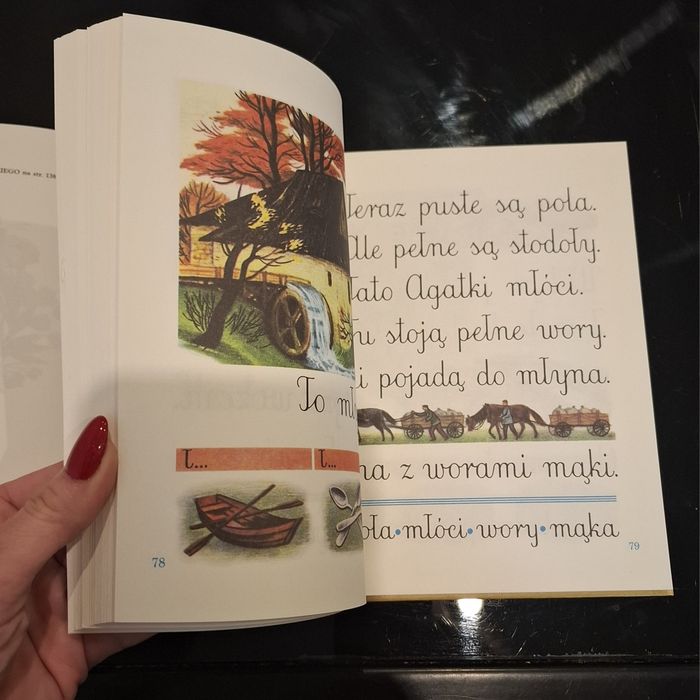 IEGO na str. 136
To mł
ł... ł...
78
Teraz puste są pola.
Ale pełne są stodoły.
Tato Agatki młóci.
Tu stoją pełne wory.
i pojadą do młyna.
na z worami mąki.
oła•młóci•wory•mąka
79